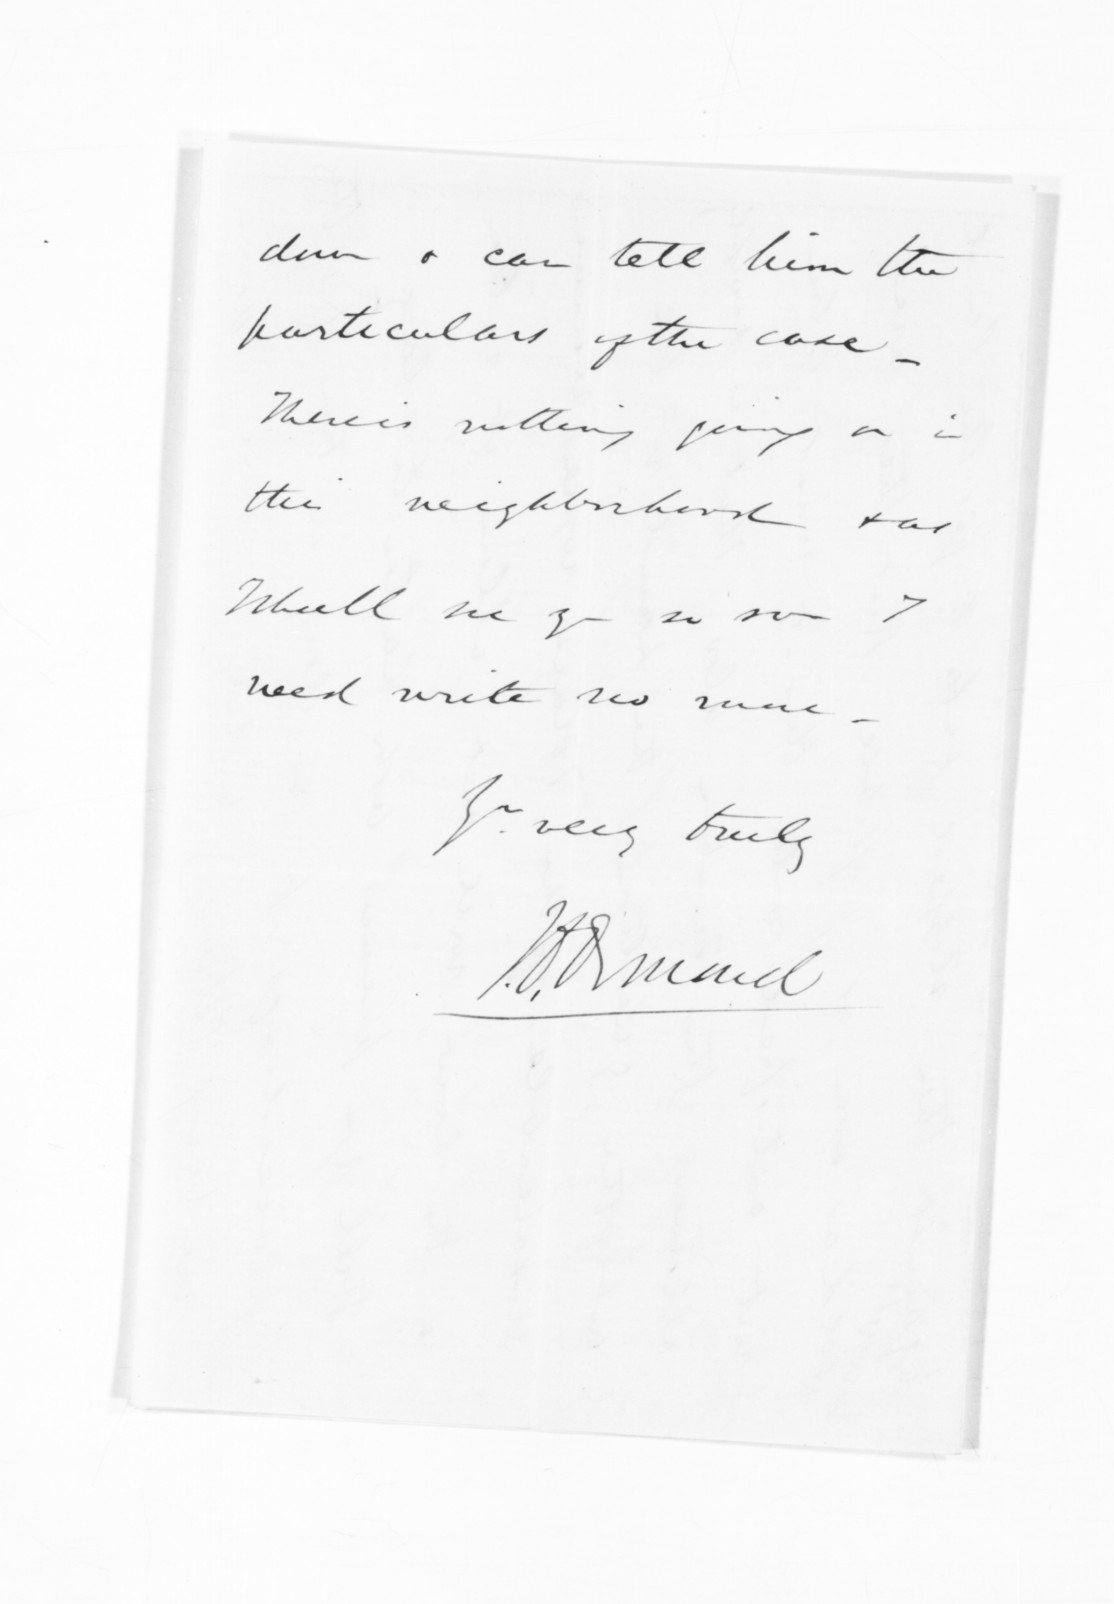 down & can tell him the
particulars of the case _
There is nothing going on in
this neighborhood & as
shall see you so soon I
need write no more _
Yrs. very truly
J. D. Ormond